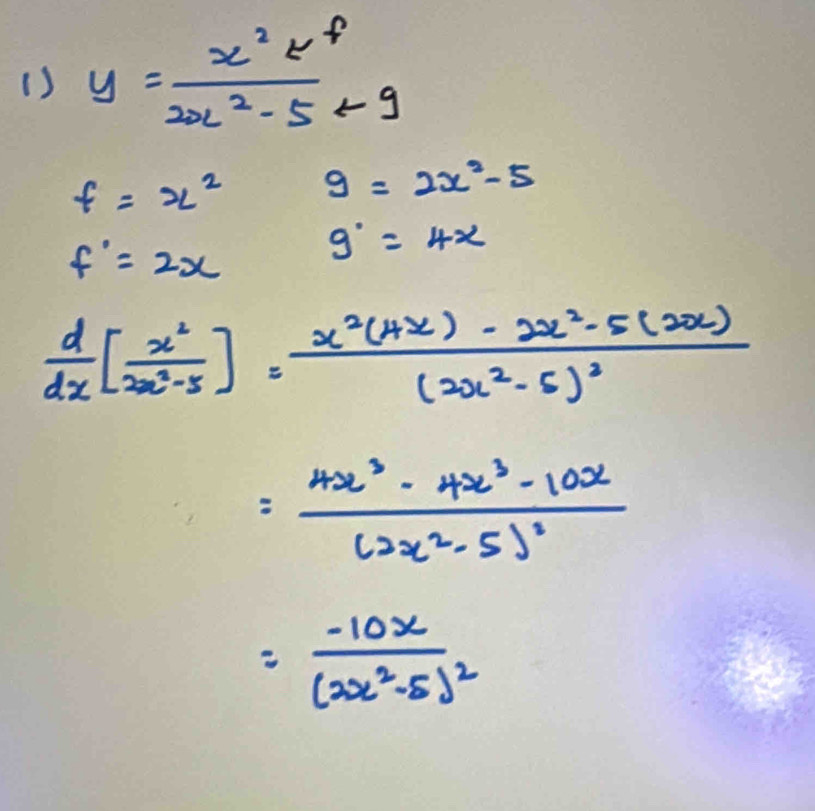 1) y = x² ← f / 2x² - 5 ← g
f = x² g = 2x² - 5
f' = 2x g' = 4x
d/dx [x² / 2x² - 5] = x²(4x) - 2x² - 5(2x) / (2x² - 5)²
= 4x³ - 4x³ - 10x / (2x² - 5)²
= -10x / (2x² - 5)²